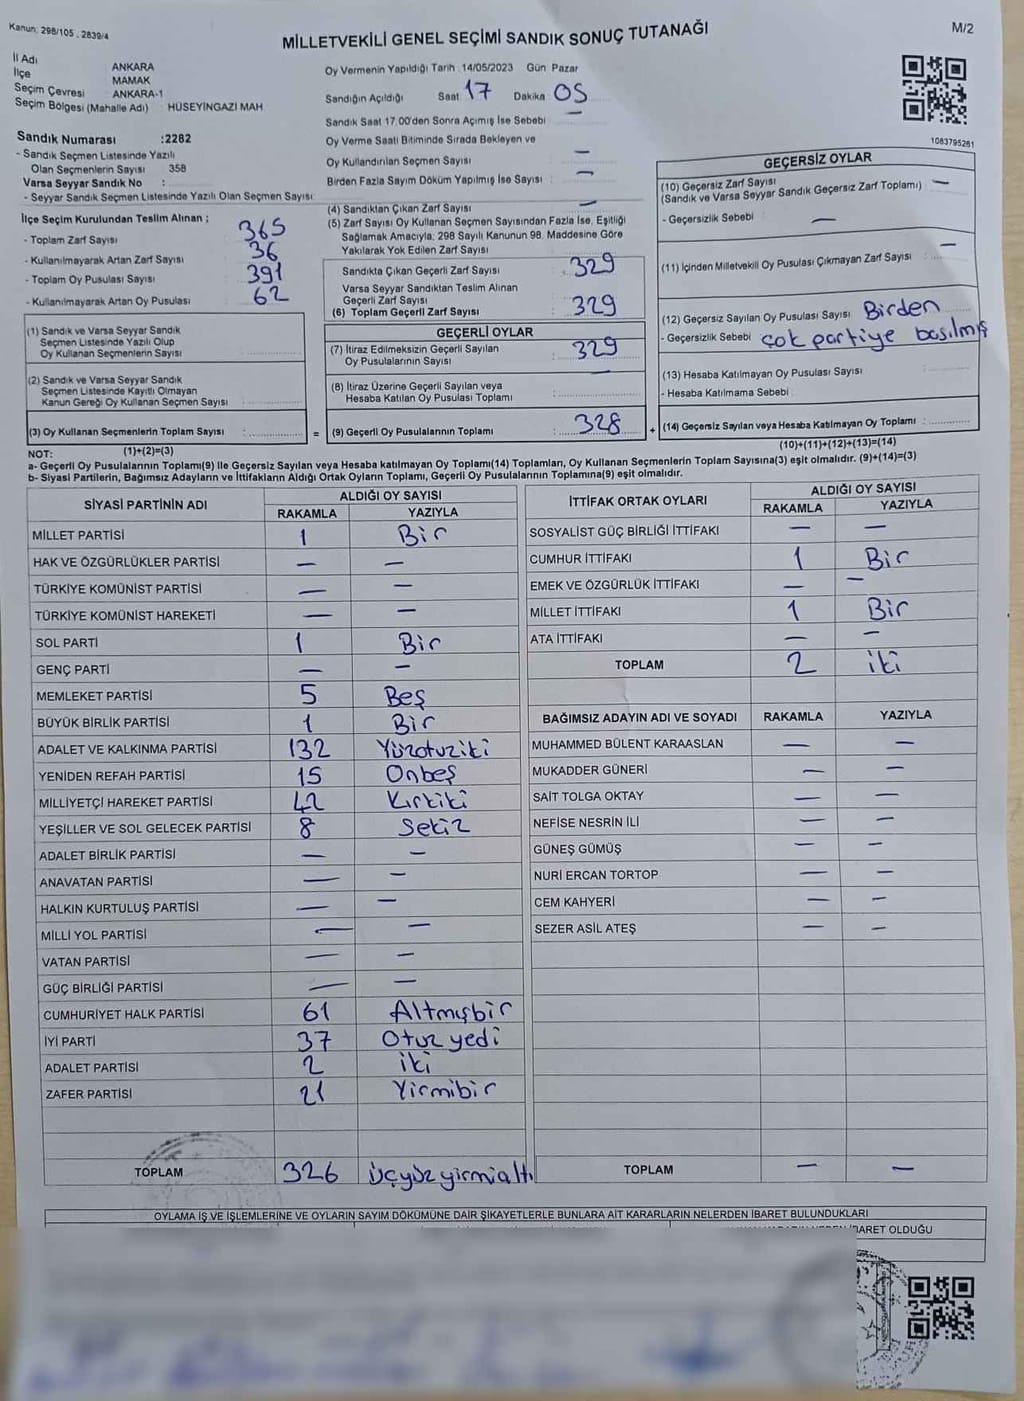 Kanun: 298/105 , 2839/4
MİLLETVEKİLİ GENEL SEÇİMİ SANDIK SONUÇ TUTANAĞI
M/2
İl Adı ANKARA
İlçe MAMAK
Seçim Çevresi ANKARA-1
Seçim Bölgesi (Mahalle Adı) HÜSEYİNGAZİ MAH
Sandık Numarası :2282
- Sandık Seçmen Listesinde Yazılı
Olan Seçmenlerin Sayısı : 358
Varsa Seyyar Sandık No :
- Seyyar Sandık Seçmen Listesinde Yazılı Olan Seçmen Sayısı:
İlçe Seçim Kurulundan Teslim Alınan ;
- Toplam Zarf Sayısı 365
- Kullanılmayarak Artan Zarf Sayısı 36
- Toplam Oy Pusulası Sayısı 391
- Kullanılmayarak Artan Oy Pusulası 62
(1) Sandık ve Varsa Seyyar Sandık
Seçmen Listesinde Yazılı Olup
Oy Kullanan Seçmenlerin Sayısı :
(2) Sandık ve Varsa Seyyar Sandık
Seçmen Listesinde Kayıtlı Olmayan
Kanun Gereği Oy Kullanan Seçmen Sayısı :
(3) Oy Kullanan Seçmenlerin Toplam Sayısı :
Oy Vermenin Yapıldığı Tarih :14/05/2023 Gün Pazar
Sandığın Açıldığı Saat 17 Dakika 05
Sandık Saat 17.00'den Sonra Açımış İse Sebebi : —
Oy Verme Saati Bitiminde Sırada Bekleyen ve
Oy Kullandırılan Seçmen Sayısı —
Birden Fazla Sayım Döküm Yapılmış İse Sayısı : —
(4) Sandıktan Çıkan Zarf Sayısı —
(5) Zarf Sayısı Oy Kullanan Seçmen Sayısından Fazla İse, Eşitliği
Sağlamak Amacıyla; 298 Sayılı Kanunun 98. Maddesine Göre
Yakılarak Yok Edilen Zarf Sayısı
Sandıkta Çıkan Geçerli Zarf Sayısı : 329
Varsa Seyyar Sandıktan Teslim Alınan
Geçerli Zarf Sayısı
(6) Toplam Geçerli Zarf Sayısı : 329
GEÇERLİ OYLAR
(7) İtiraz Edilmeksizin Geçerli Sayılan
Oy Pusulalarının Sayısı : 329
(8) İtiraz Üzerine Geçerli Sayılan veya
Hesaba Katılan Oy Pusulası Toplamı : —
= (9) Geçerli Oy Pusulalarının Toplamı : 328
1083795261
GEÇERSİZ OYLAR
(10) Geçersiz Zarf Sayısı —
(Sandık ve Varsa Seyyar Sandık Geçersiz Zarf Toplamı)
- Geçersizlik Sebebi : —
(11) İçinden Milletvekili Oy Pusulası Çıkmayan Zarf Sayısı : —
(12) Geçersiz Sayılan Oy Pusulası Sayısı : Birden
- Geçersizlik Sebebi çok partiye basılmış
(13) Hesaba Katılmayan Oy Pusulası Sayısı :
- Hesaba Katılmama Sebebi :
+ (14) Geçersiz Sayılan veya Hesaba Katılmayan Oy Toplamı :
NOT: (1)+(2)=(3)
(10)+(11)+(12)+(13)=(14)
a- Geçerli Oy Pusulalarının Toplamı(9) ile Geçersiz Sayılan veya Hesaba katılmayan Oy Toplamı(14) Toplamları, Oy Kullanan Seçmenlerin Toplam Sayısına(3) eşit olmalıdır. (9)+(14)=(3)
b- Siyasi Partilerin, Bağımsız Adayların ve İttifakların Aldığı Ortak Oyların Toplamı, Geçerli Oy Pusulalarının Toplamına(9) eşit olmalıdır.
SİYASİ PARTİNİN ADI ALDIĞI OY SAYISI
RAKAMLA YAZIYLA
MİLLET PARTİSİ 1 Bir
HAK VE ÖZGÜRLÜKLER PARTİSİ — —
TÜRKİYE KOMÜNİST PARTİSİ — —
TÜRKİYE KOMÜNİST HAREKETİ — —
SOL PARTİ 1 Bir
GENÇ PARTİ — —
MEMLEKET PARTİSİ 5 Beş
BÜYÜK BİRLİK PARTİSİ 1 Bir
ADALET VE KALKINMA PARTİSİ 132 Yüzotuziki
YENİDEN REFAH PARTİSİ 15 Onbeş
MİLLİYETÇİ HAREKET PARTİSİ 42 Kırkiki
YEŞİLLER VE SOL GELECEK PARTİSİ 8 Sekiz
ADALET BİRLİK PARTİSİ — —
ANAVATAN PARTİSİ — —
HALKIN KURTULUŞ PARTİSİ — —
MİLLİ YOL PARTİSİ — —
VATAN PARTİSİ — —
GÜÇ BİRLİĞİ PARTİSİ — —
CUMHURİYET HALK PARTİSİ 61 Altmışbir
İYİ PARTİ 37 Otuz yedi
ADALET PARTİSİ 2 iki
ZAFER PARTİSİ 21 Yirmibir
TOPLAM 326 Üçyüzyirmialtı
İTTİFAK ORTAK OYLARI ALDIĞI OY SAYISI
RAKAMLA YAZIYLA
SOSYALİST GÜÇ BİRLİĞİ İTTİFAKI — —
CUMHUR İTTİFAKI 1 Bir
EMEK VE ÖZGÜRLÜK İTTİFAKI — —
MİLLET İTTİFAKI 1 Bir
ATA İTTİFAKI — —
TOPLAM 2 iki
BAĞIMSIZ ADAYIN ADI VE SOYADI RAKAMLA YAZIYLA
MUHAMMED BÜLENT KARAASLAN — —
MUKADDER GÜNERİ — —
SAİT TOLGA OKTAY — —
NEFİSE NESRİN İLİ — —
GÜNEŞ GÜMÜŞ — —
NURİ ERCAN TORTOP — —
CEM KAHYERİ — —
SEZER ASİL ATEŞ — —
TOPLAM — —
OYLAMA İŞ VE İŞLEMLERİNE VE OYLARIN SAYIM DÖKÜMÜNE DAİR ŞİKAYETLERLE BUNLARA AİT KARARLARIN NELERDEN İBARET BULUNDUKLARI
İBARET OLDUĞU